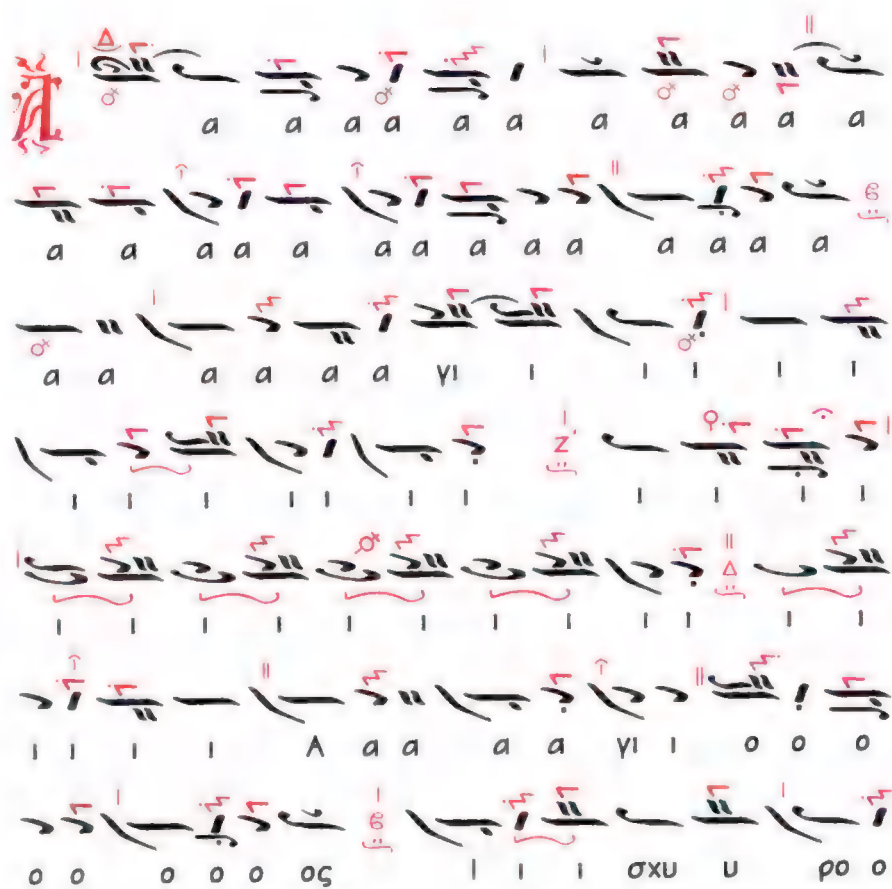 Α α α α α α α α α α α α
α α α α α α α α α α α α α α
α α α α α α γι ι ι ι ι ι
ι ι ι ι ι ι ι ι ι ι ι
ι ι ι ι ι ι ι ι ι ι ι ι
ι ι ι ι Α α α α α γι ι ο ο ο
ο ο ο ο ο ος ι ι ι σχυ υ ρο ο